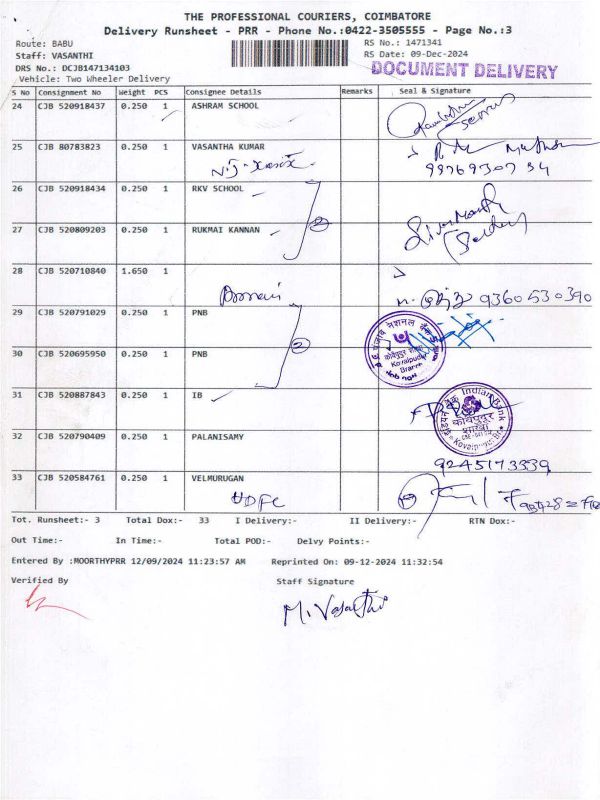 THE PROFESSIONAL COURIERS, COIMBATORE
Delivery Runsheet - PRR - Phone No.:0422-3505555 - Page No.:3
Route: BABU
Staff: VASANTHI
DRS No.: DCJB147134103
Vehicle: Two Wheeler Delivery
RS No.: 1471341
RS Date: 09-Dec-2024
DOCUMENT DELIVERY
S No Consignment No Weight PCS Consignee Details Remarks Seal & Signature
24 CJB 520918437 0.250 1 ASHRAM SCHOOL
25 CJB 80783823 0.250 1 VASANTHA KUMAR
26 CJB 520918434 0.250 1 RKV SCHOOL
2
27 CJB 520809203 0.250 1 RUKMAI KANNAN
28 CJB 520710840 1.650 1
9360530390
29 CJB 520791029 0.250 1 PNB
2
30 CJB 520695950 0.250 1 PNB
31 CJB 520887843 0.250 1 IB
Indian Bank
32 CJB 520790409 0.250 1 PALANISAMY
9245173339
33 CJB 520584761 0.250 1 VELMURUGAN
HDFC
Tot. Runsheet:- 3 Total Dox:- 33 I Delivery:- II Delivery:- RTN Dox:-
Out Time:- In Time:- Total POD:- Delvy Points:-
Entered By :MOORTHYPRR 12/09/2024 11:23:57 AM Reprinted On: 09-12-2024 11:32:54
Verified By Staff Signature
M. Vasanthi